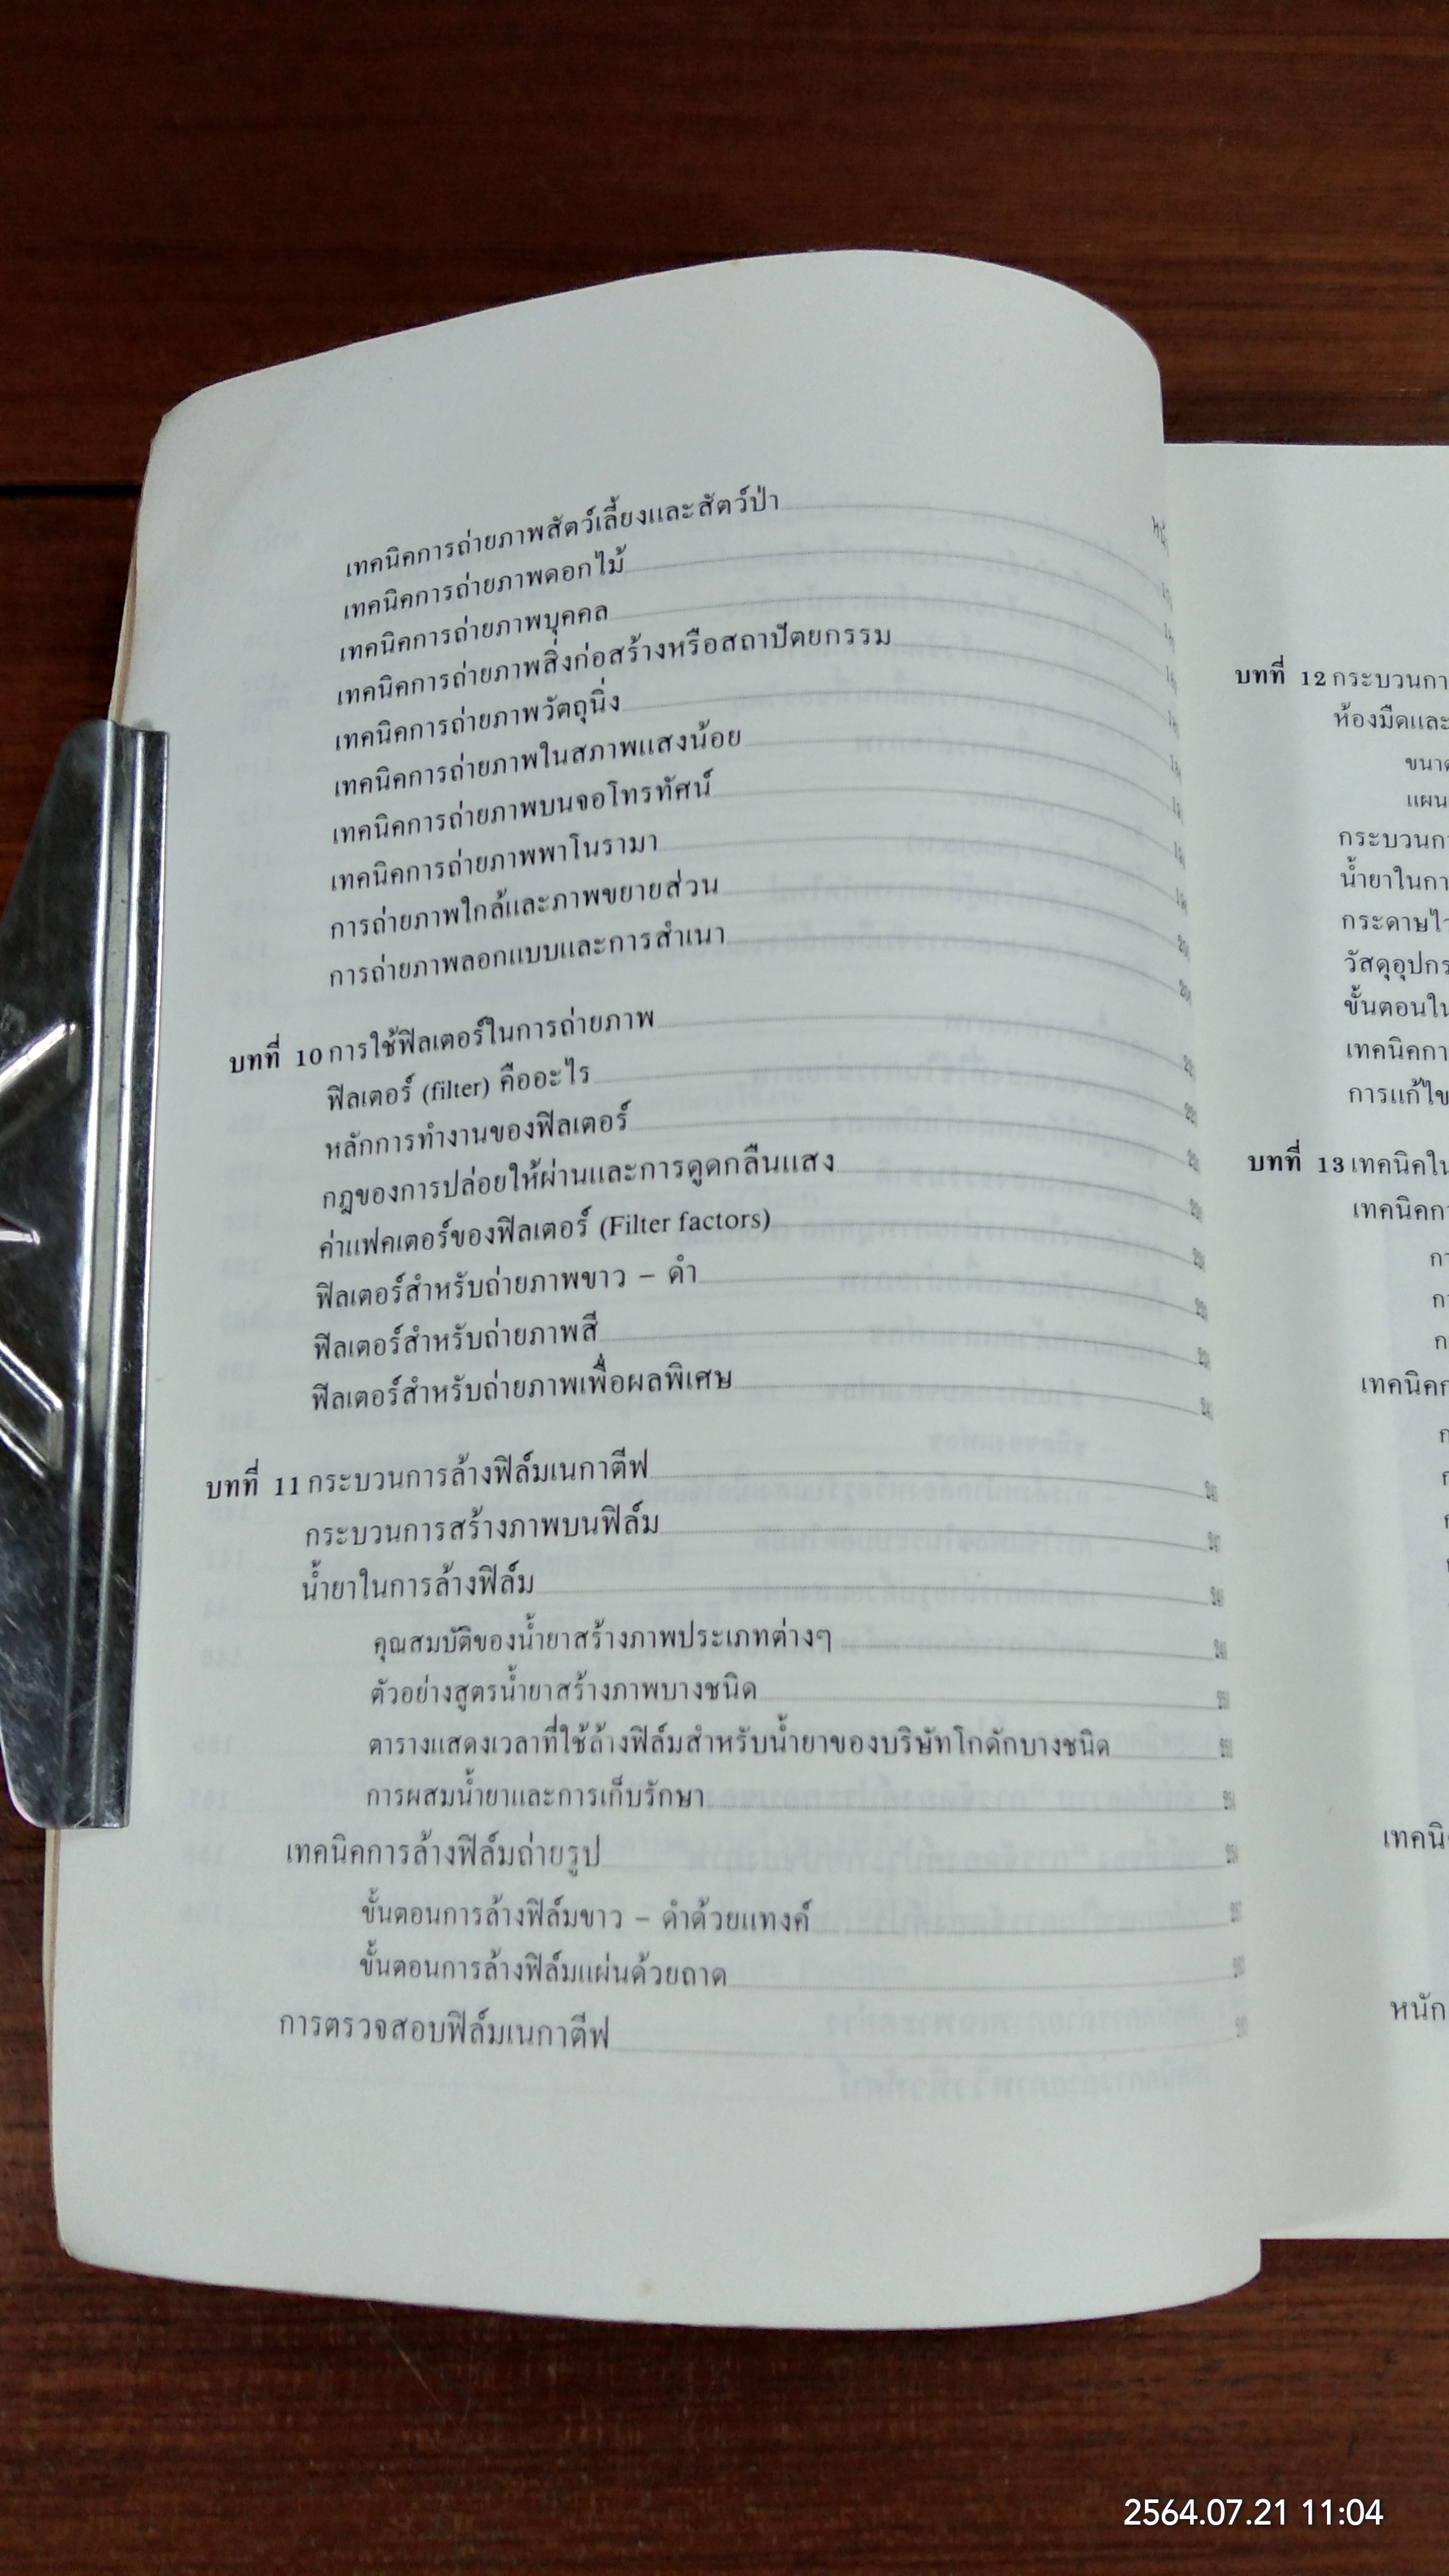 เทคนิคการถ่ายภาพสัตว์เลี้ยงและสัตว์ป่า
เทคนิคการถ่ายภาพดอกไม้
เทคนิคการถ่ายภาพบุคคล
เทคนิคการถ่ายภาพสิ่งก่อสร้างหรือสถาปัตยกรรม
เทคนิคการถ่ายภาพวัตถุนิ่ง
เทคนิคการถ่ายภาพในสภาพแสงน้อย
เทคนิคการถ่ายภาพบนจอโทรทัศน์
เทคนิคการถ่ายภาพพาโนรามา
การถ่ายภาพใกล้และภาพขยายส่วน
การถ่ายภาพลอกแบบและการสำเนา
บทที่ 10 การใช้ฟิลเตอร์ในการถ่ายภาพ
ฟิลเตอร์ (filter) คืออะไร
หลักการทำงานของฟิลเตอร์
กฎของการปล่อยให้ผ่านและการดูดกลืนแสง
ค่าแฟคเตอร์ของฟิลเตอร์ (Filter factors)
ฟิลเตอร์สำหรับถ่ายภาพขาว – ดำ
ฟิลเตอร์สำหรับถ่ายภาพสี
ฟิลเตอร์สำหรับถ่ายภาพเพื่อผลพิเศษ
บทที่ 11 กระบวนการล้างฟิล์มเนกาตีฟ
กระบวนการสร้างภาพบนฟิล์ม
น้ำยาในการล้างฟิล์ม
คุณสมบัติของน้ำยาสร้างภาพประเภทต่างๆ
ตัวอย่างสูตรน้ำยาสร้างภาพบางชนิด
ตารางแสดงเวลาที่ใช้ล้างฟิล์มสำหรับน้ำยาของบริษัทโกดักบางชนิด
การผสมน้ำยาและการเก็บรักษา
เทคนิคการล้างฟิล์มถ่ายรูป
ขั้นตอนการล้างฟิล์มขาว – ดำด้วยแทงค์
ขั้นตอนการล้างฟิล์มแผ่นด้วยถาด
การตรวจสอบฟิล์มเนกาตีฟ
บทที่ 12 กระบวนกา
ห้องมืดและ
ขนาด
แผน
กระบวนก
น้ำยาในกา
กระดาษไว
วัสดุอุปกร
ขั้นตอนใน
เทคนิคกา
การแก้ไข
บทที่ 13 เทคนิคใน
เทคนิคกา
กา
กา
ก
เทคนิคก
ก
ก
เทคนิ
หนัก
2564.07.21 11:04